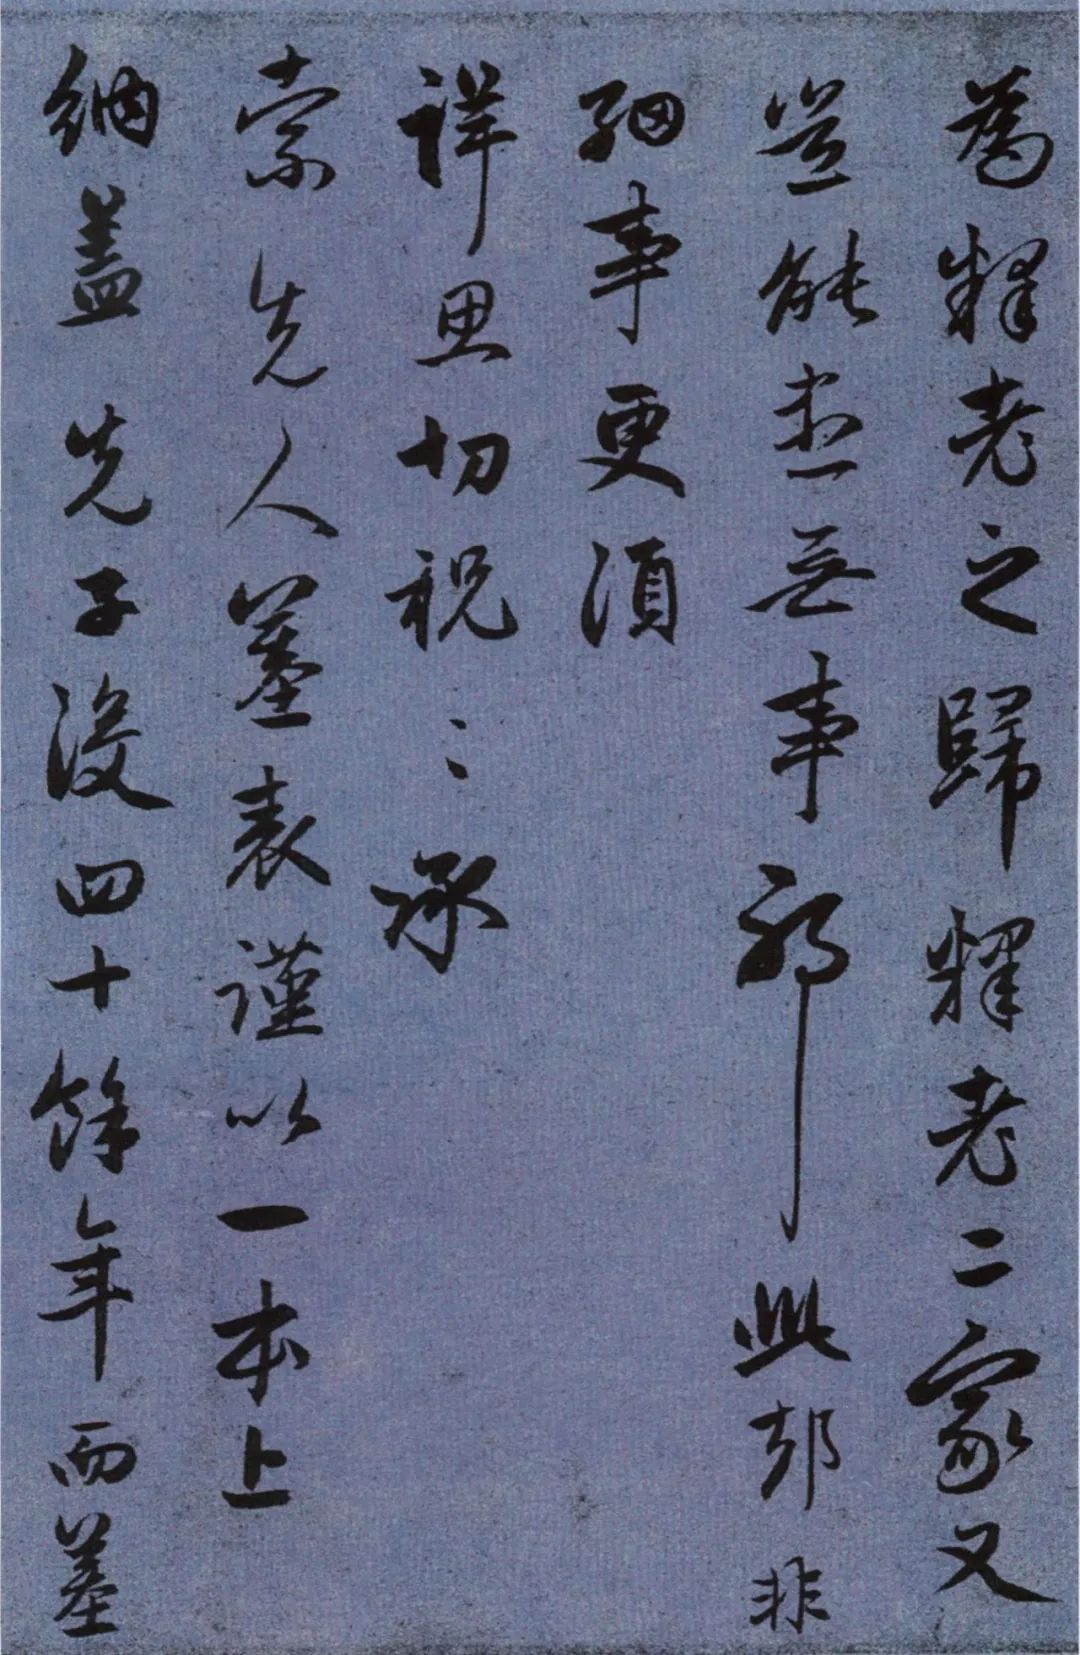 為釋老之歸釋老二家又
豈能盡無事耶此却非
細事更須
詳思切祝〻承
索先人墓表謹以一本上
納蓋先子沒四十餘年而墓